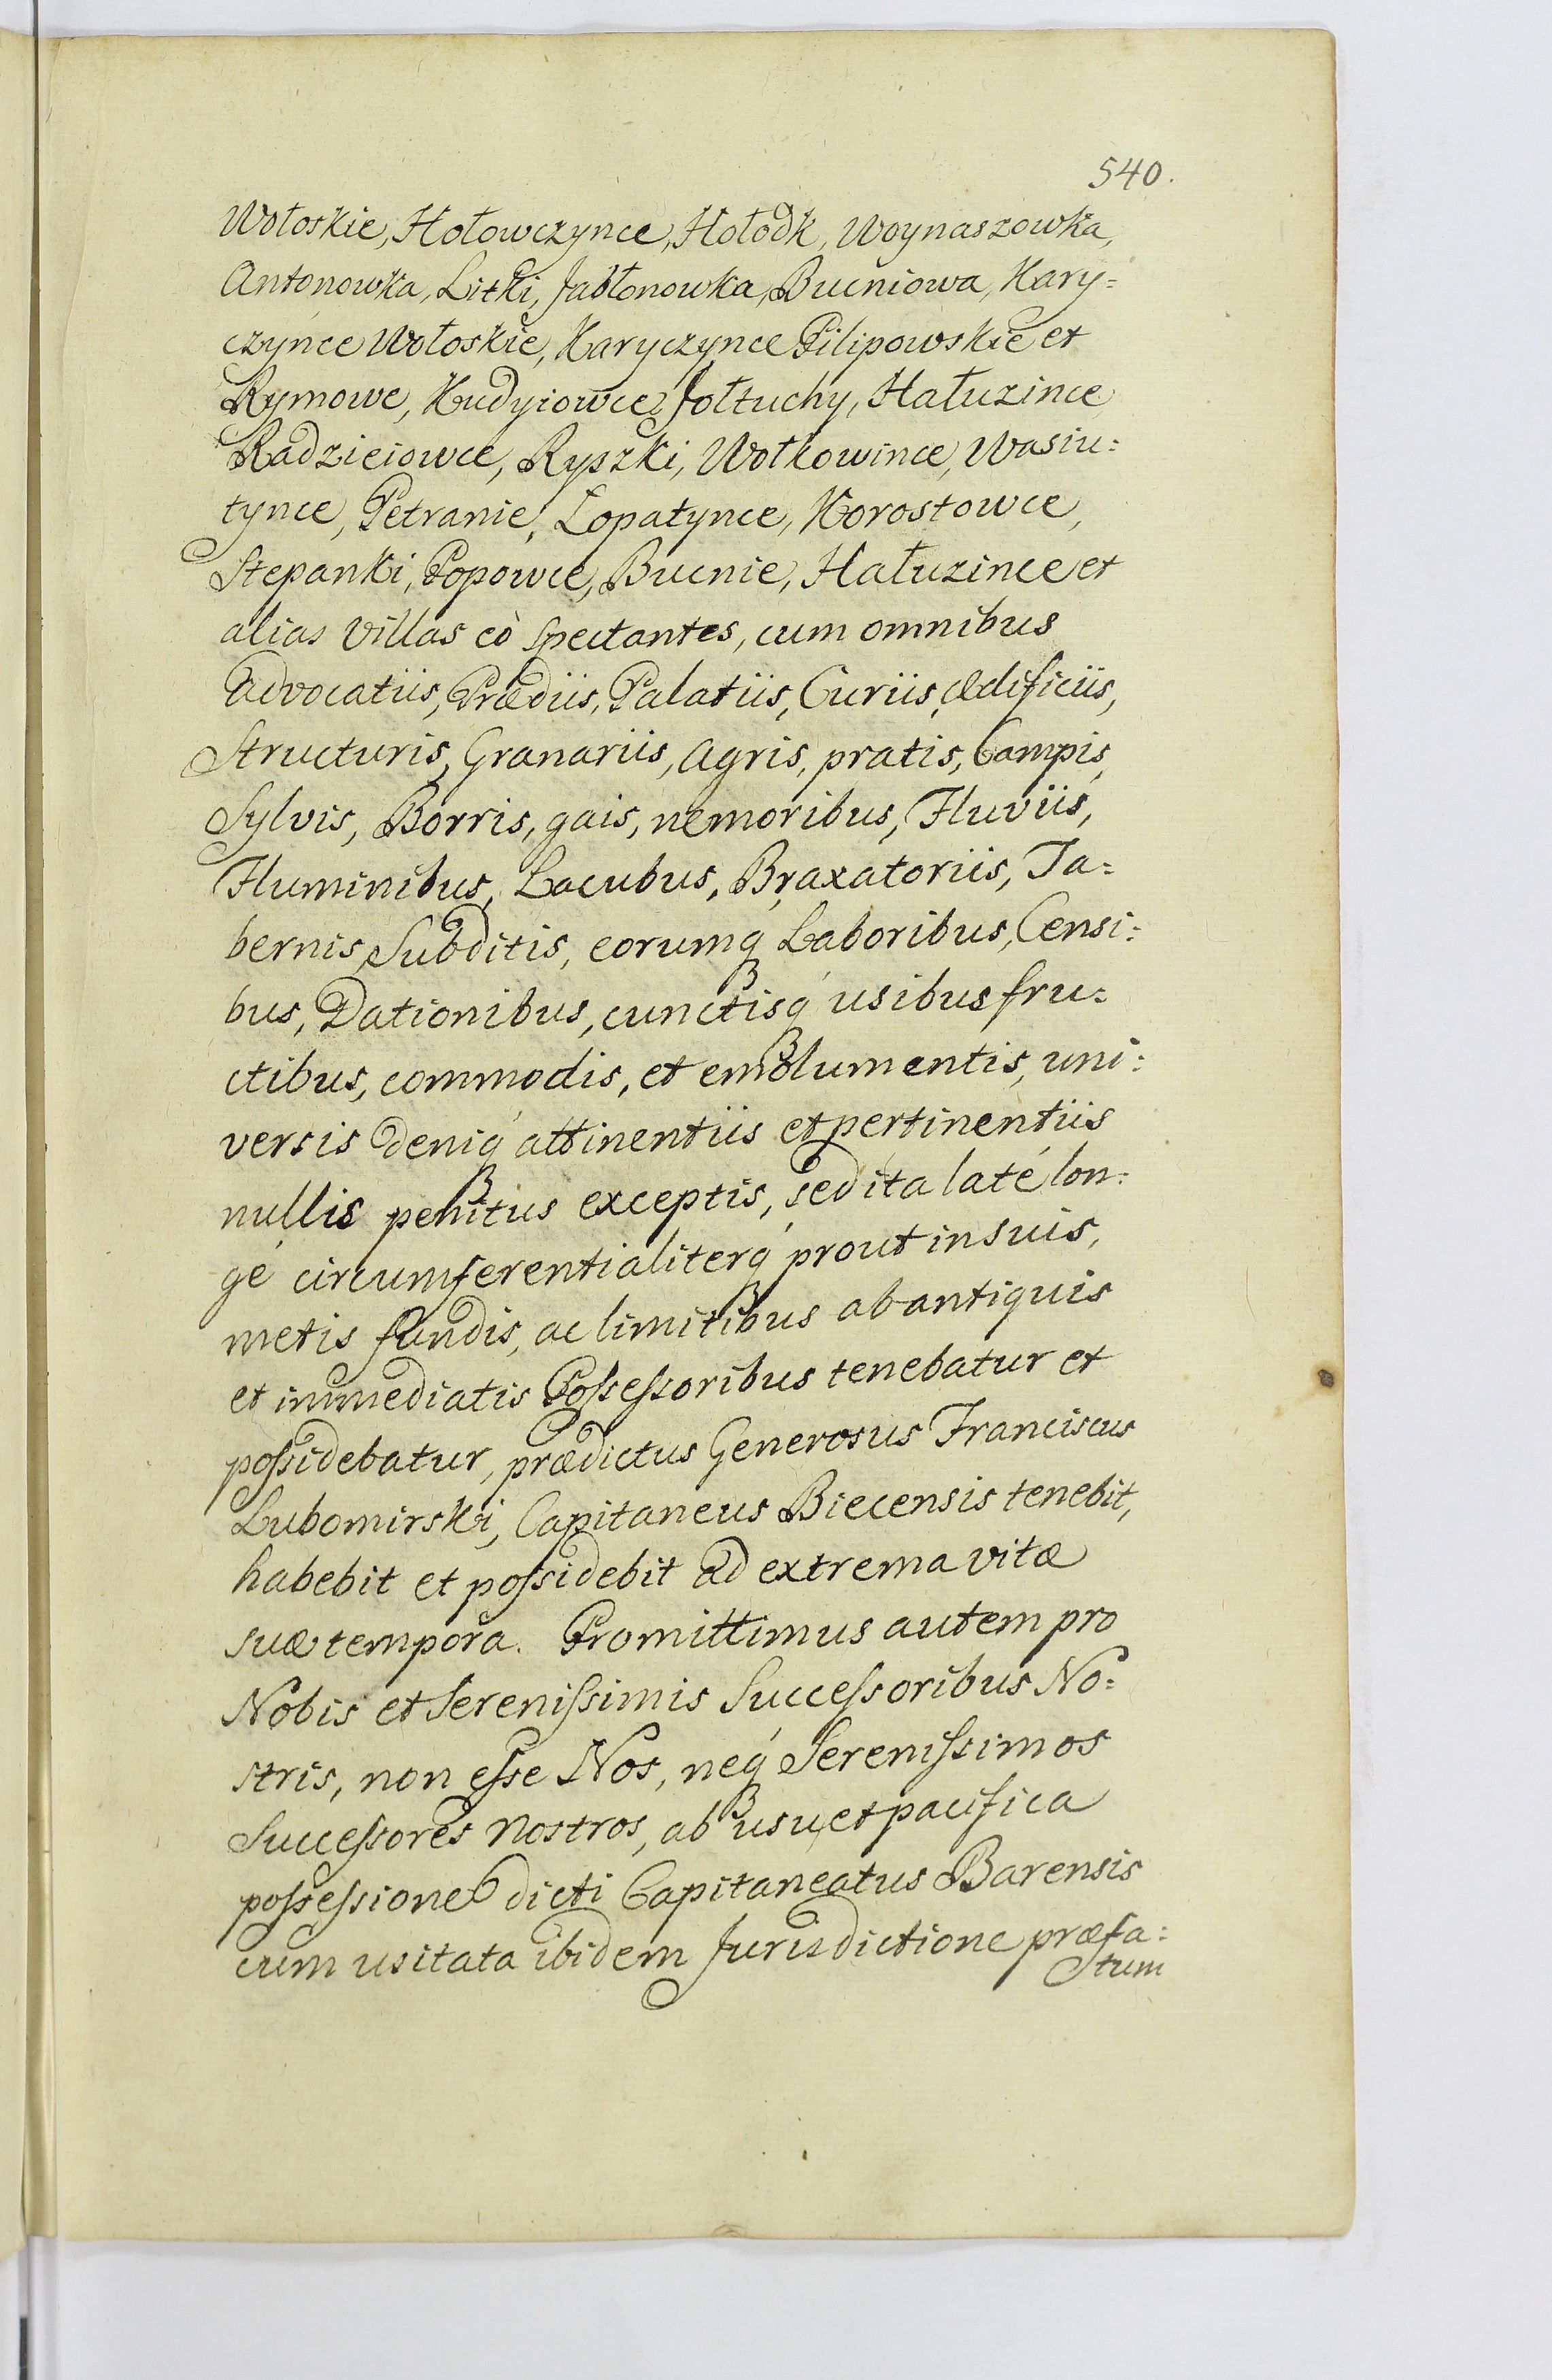 540.
Wołoskie, Hołowczynce, Hołodk, Woynaszowka,
Antonowka, Litki, Jabłonowka, Bucniowa, Kary=
czynce Wołoskie, Karyczynce Pilipowskie et
Rymowe, Kudyiowce, Jołtuchy, Hałuzince
Radzieiowce, Ryszki, Wołkowince, Wasiu=
tynce, Petranie, Lopatynce, Korostowce,
Stepanki, Popowce, Bucnie, Hałuzince et
alias Villas eò spectantes, cum omnibus
Advocatiis, Prædiis, Palatiis, Curiis, ædificiis,
Structuris, Granariis, Agris, pratis, Campis,
Sylvis, Borris, gais, nemoribus, Fluviis,
Fluminibus, Lacubus, Braxatoriis, Ta=
bernis, Subditis, eorumq́ Laboribus, Censi=
bus, Dationibus, cunctisq́ usibus fru=
ctibus, commodis, et emolumentis, uni=
versis deniq́ attinentiis et pertinentiis
nullis penitus exceptis, sed ita laté lon=
gé circumferentialiterq́ prout in suis,
metis fundis, ac limitibus ab antiquis
et immediatis Possessoribus tenebatur et
possidebatur, prædictus Generosus Franciscus
Lubomirski, Capitaneus Biecensis tenebit,
habebit et possidebit ad extrema vitæ
suæ tempora. Promittimus autem pro
Nobis et Serenissimis Successoribus No=
stris, non esse Nos, neq́ Serenissimos
Successores Nostros, ab usu et pacifica
possessione dicti Capitaneatus Barensis
cum usitata ibidem Jurisdictione præfa=
tum